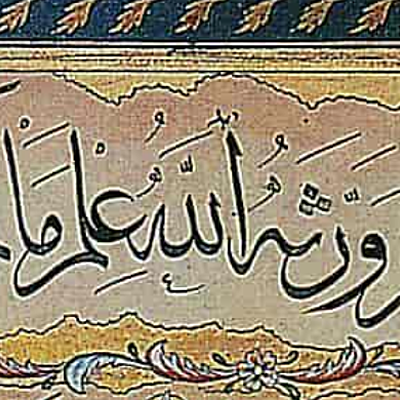 وَرَّثَهُ اَللَّهُ عِلْمَ مَا